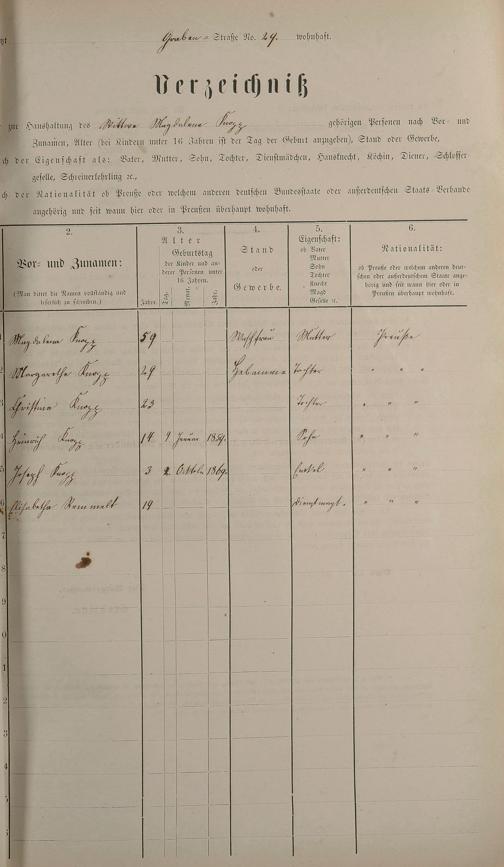 Graben-Straße No. 29. wohnhaft.
Verzeichniß
zur Haushaltung des Wittwe Magdalena Knopp gehörigen Personen nach Vor- und
Zunamen, Alter (bei Kindern unter 16 Jahren ist der Tag der Geburt anzugeben), Stand oder Gewerbe,
ch der Eigenschaft als: Vater, Mutter, Sohn, Tochter, Dienstmädchen, Hausknecht, Köchin, Diener, Schlosser-
geselle, Schreinerlehrling ꝛc.,
ch der Nationalität ob Preuße oder welchem anderen deutschen Bundesstaate oder außerdeutschen Staats-Verbande
angehörig und seit wann hier oder in Preußen überhaupt wohnhaft.
2. 3. 4. 5. 6.
Vor- und Zunamen:
(Man bittet die Namen vollständig und
leserlich zu schreiben.)
Alter
Geburtstag
der Kinder und an-
derer Personen unter
16 Jahren.
Jahre. Tag. Monat. Jahr.
Stand
oder
Gewerbe.
Eigenschaft:
ob Vater
Mutter
Sohn
Tochter
Knecht
Magd
Geselle ꝛc.
Nationalität:
ob Preuße oder welchem anderen deut-
schen oder außerdeutschen Staate ange-
hörig und seit wann hier oder in
Preußen überhaupt wohnhaft.
Magdalena Knopp 59 Mutter Preuße
2 Margaretha Knopp 29 Hebamme Tochter " " "
3 Christina Knopp 23 Tochter " " "
4 Heinrich Knopp 14 9 Januar 1859. Sohn " " "
5 Joseph Knopp 3 2 Octob. 1869. Enkel " " "
6 Elisabetha 19 Dienstmagd. " " "
7
8
9
0
1
2
3
4
5
6